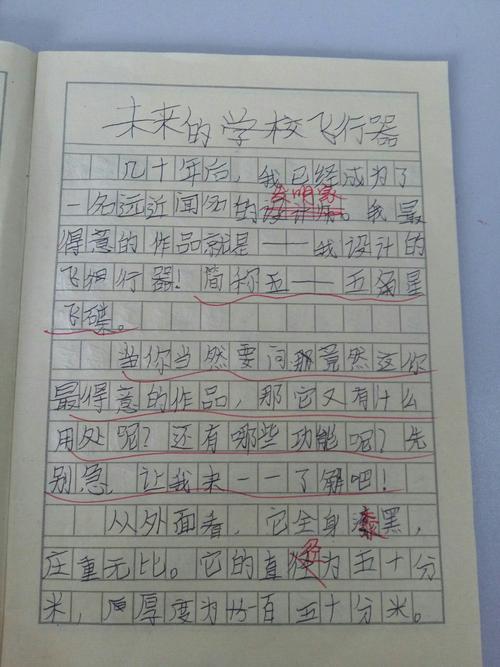 未来的学校飞行器
几十年后，我已经成为了
发明家
一名远近闻名的设计师。我最
得意的作品就是——我设计的
飞行器！简称五——五角星
飞碟。
当你当然要问那竟然这你
最得意的作品，那它又有什么
用处呢？还有哪些功能呢？先
别急，让我来一一了解吧！
从外面看，它全身漆黑，
庄重无比。它的直径为五十分
米，厚度为一百五十分米。